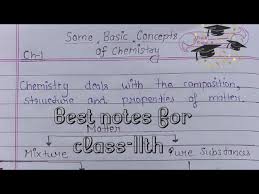 Some Basic Concepts
Ch-1
of Chemistry
Chemistry deals with the composition,
structure and properties of matter.
Best notes for
Matter
class-11th
Mixture
Pure Substances